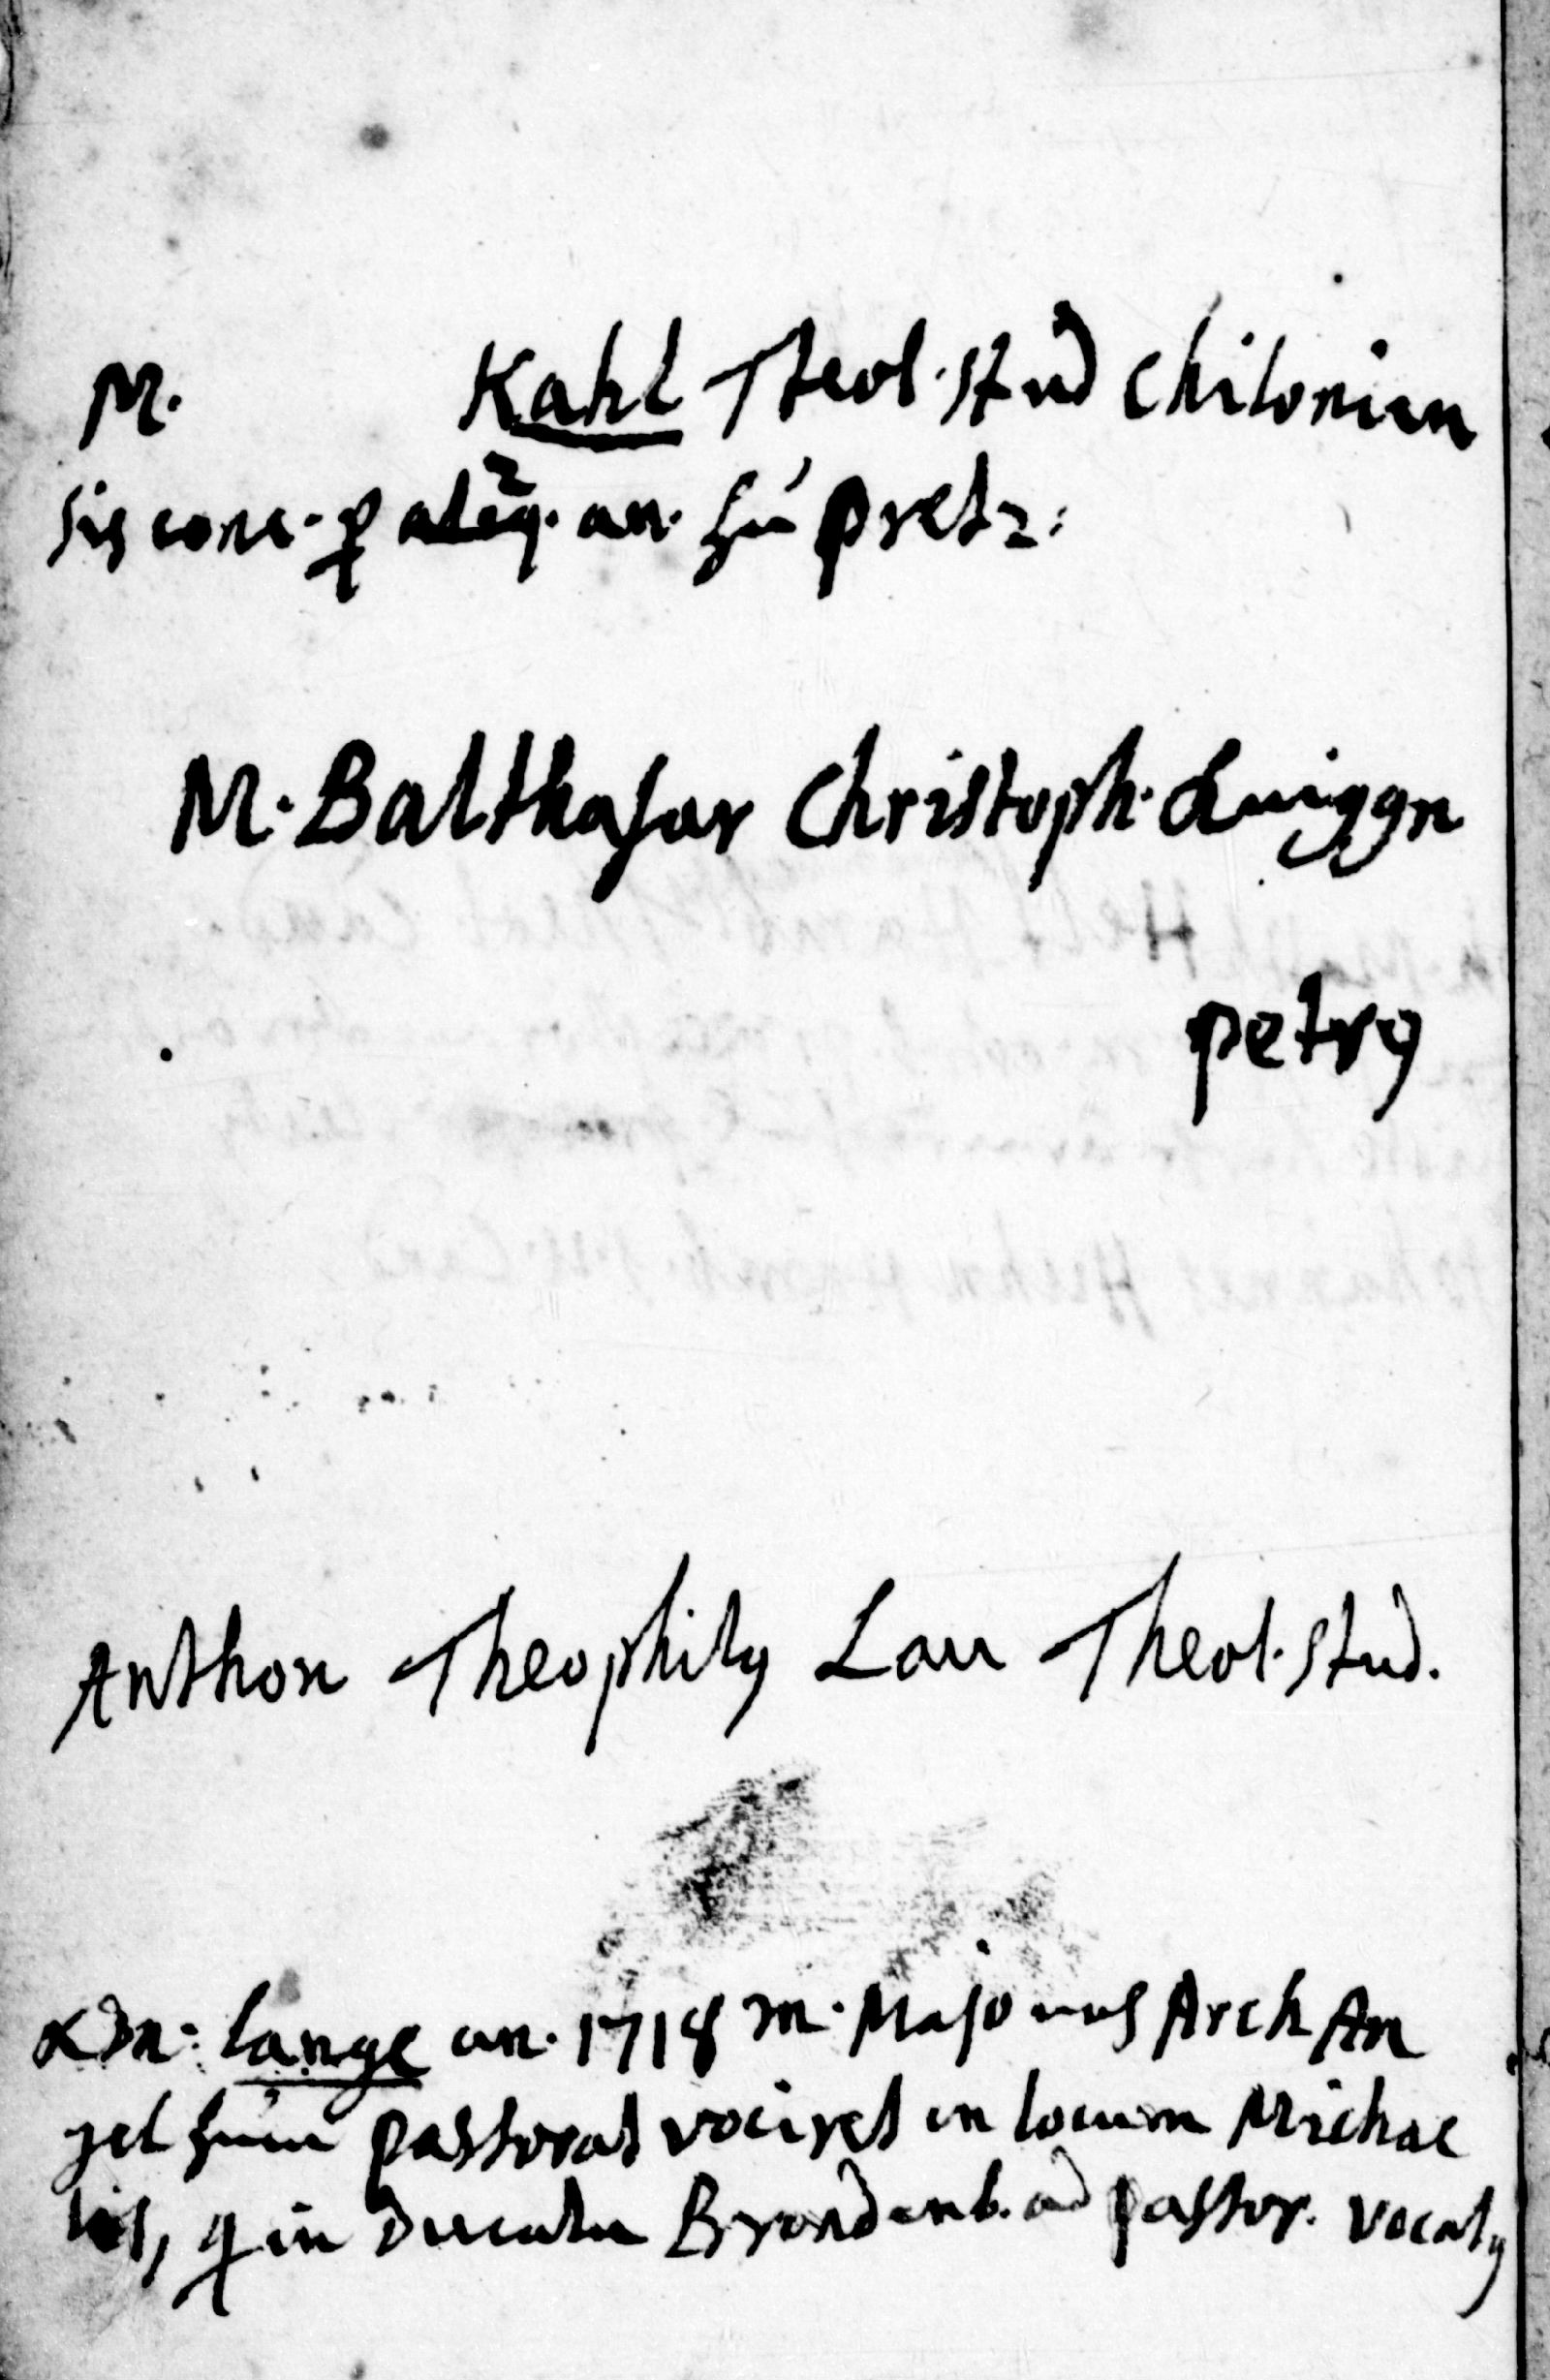 M. Kahl Theol. stud Chilonien
sis conc. p aleq. an. zu Pretz:
M. Balthasar Christoph.
petry
Anthon Theophily Lau Theol. stud.
Dn: Lange an. 1718 m. Majo nach Arch An
gel zum pastorat vociret in locum Michae
lis, q in Ducatu Brandenb. ad pastor. vocaty